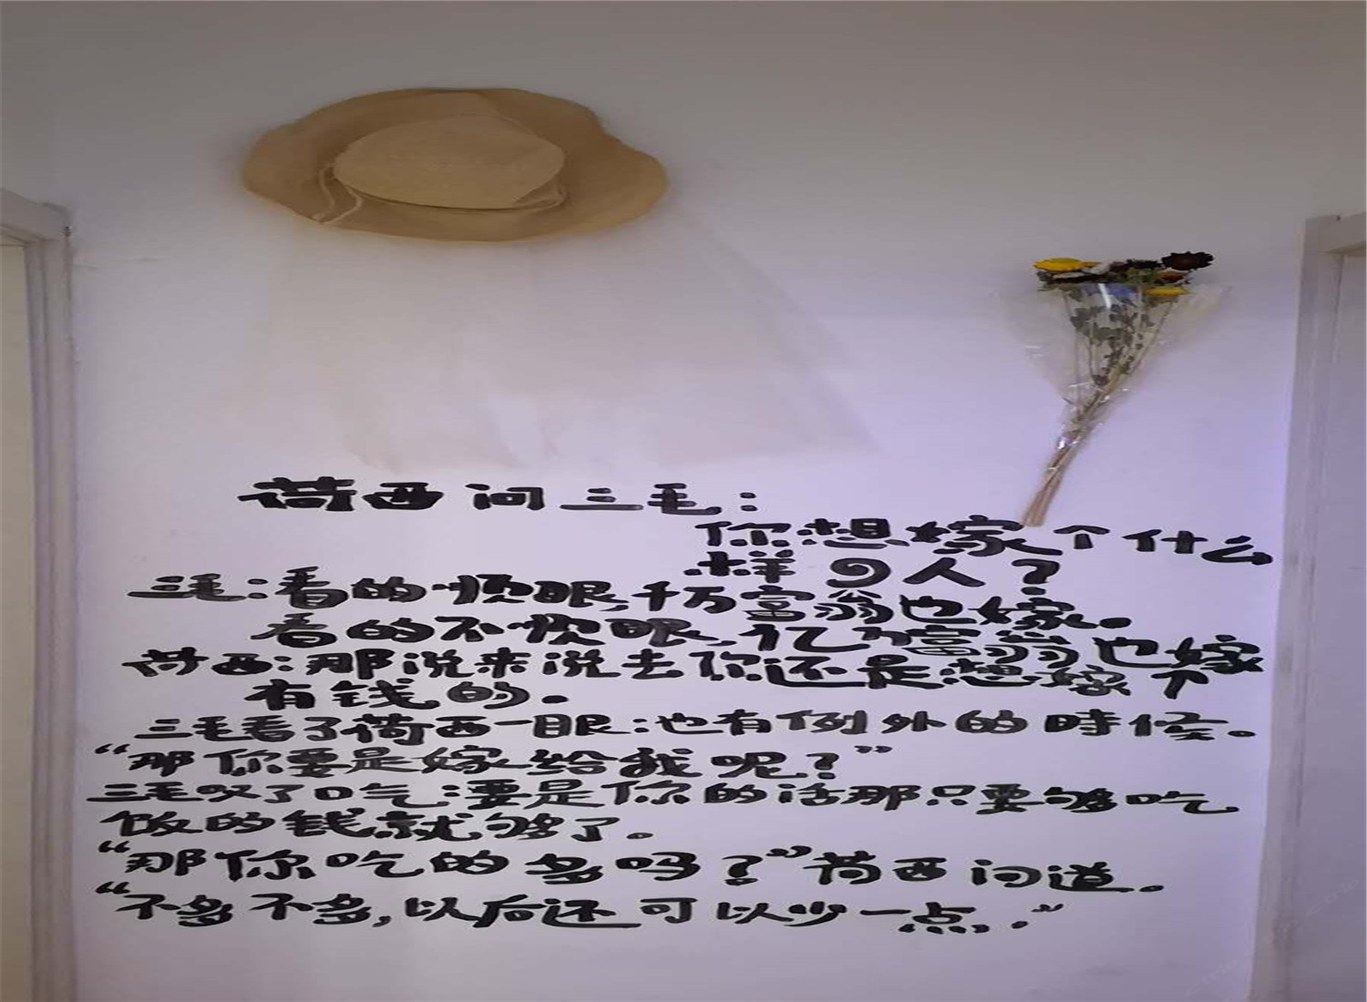 荷西问三毛：
你想嫁个什么
样的人？
三毛：看的顺眼，千万富翁也嫁。
看的不顺眼，亿万富翁也嫁
荷西：那说来说去你还是想嫁个
有钱的。
三毛看了荷西一眼：也有例外的時候。
“那你要是嫁给我呢？”
三毛叹了口气：要是你的话那只要够吃
饭的钱就够了。
“那你吃的多吗？”荷西问道。
“不多不多，以后还可以少一点。”